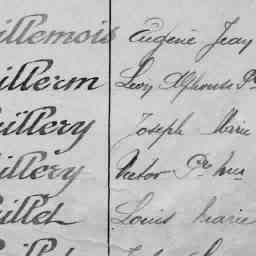 illemois Eugène Jean
illerm Léon Alphonse
illery Joseph Marie
illery Victor
illet Louis Marie